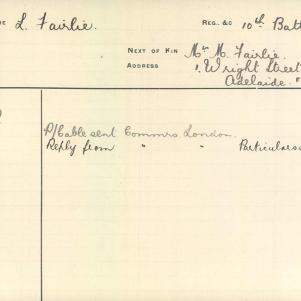 L. Fairlie. REG. &C 10th Batt
NEXT OF KIN Mr M. Fairlie.
ADDRESS 1. Wright Street
Adelaide.
P/Cable sent Commrs London.
Reply from " " Particulars